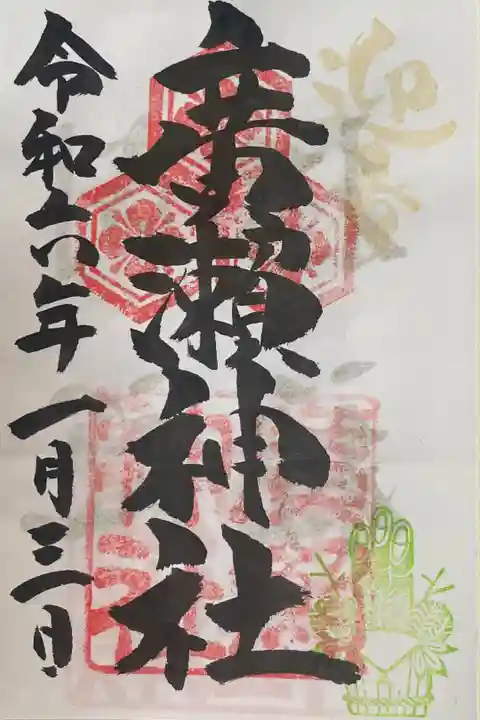 迎春
廣瀬神社
令和六年一月三日